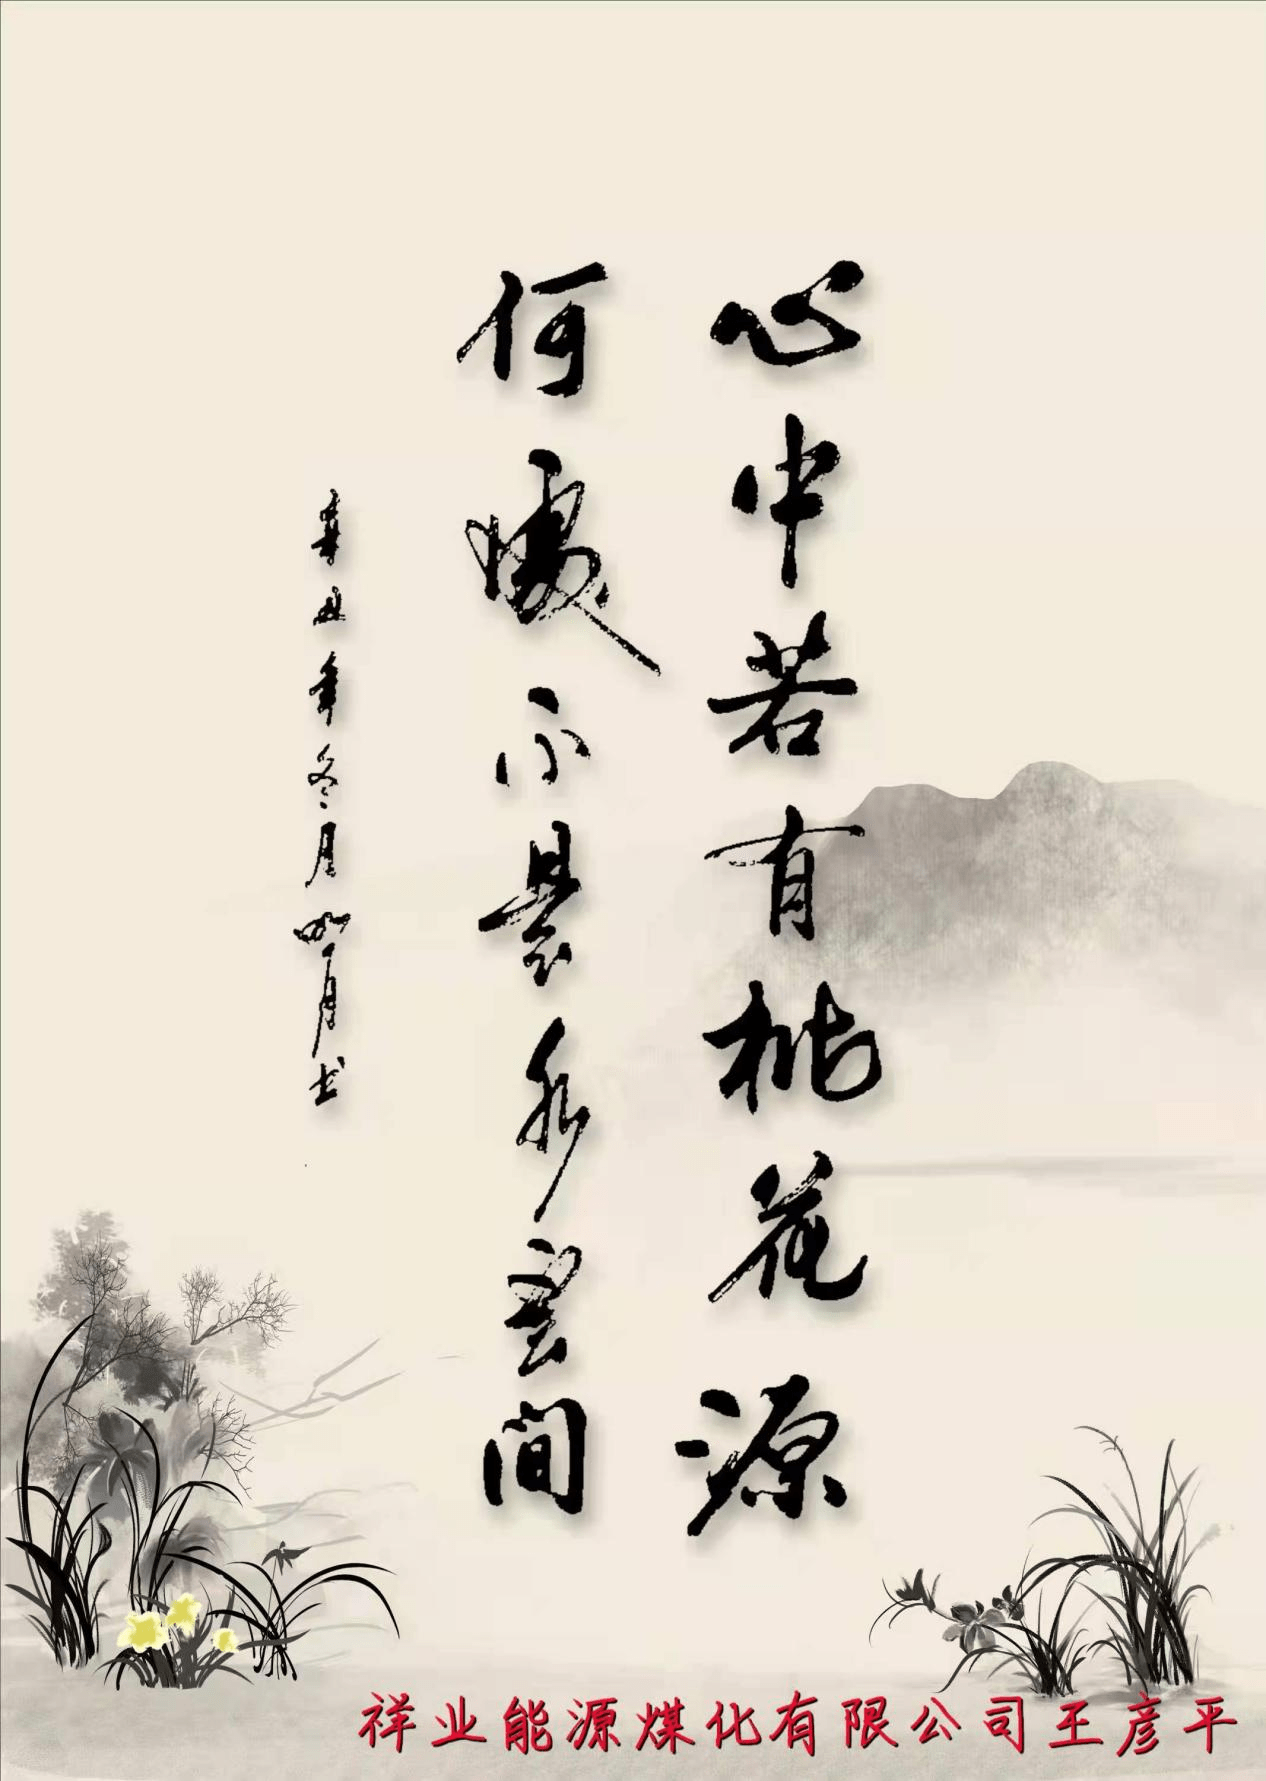 心中若有桃花源
何处不是水云间
辛丑年冬月如月书
祥业能源煤化有限公司王彦平